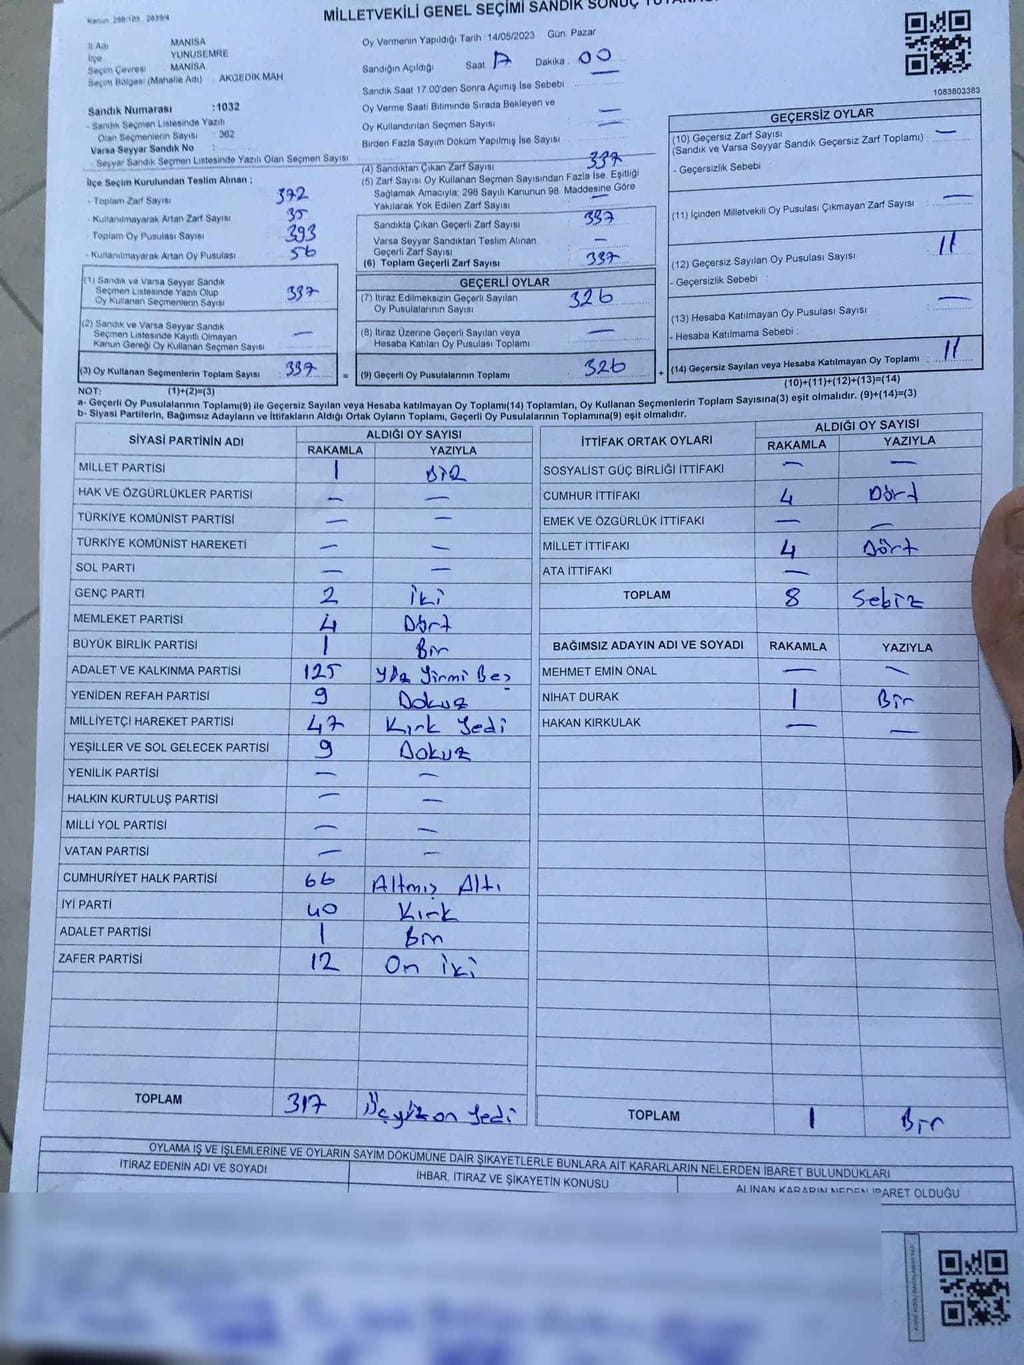 Kanun
MİLLETVEKİLİ GENEL SEÇİMİ SANDIK SONUÇ
İl Adı MANİSA
İlçe YUNUSEMRE
Seçim Çevresi MANİSA
Seçim Bölgesi (Mahalle Adı) : AKGEDİK MAH
Sandık Numarası :1032
- Sandık Seçmen Listesinde Yazılı
Olan Seçmenlerin Sayısı : 362
Varsa Seyyar Sandık No :
- Seyyar Sandık Seçmen Listesinde Yazılı Olan Seçmen Sayısı
İlçe Seçim Kurulundan Teslim Alınan ;
- Toplam Zarf Sayısı 372
- Kullanılmayarak Artan Zarf Sayısı 35
- Toplam Oy Pusulası Sayısı 393
- Kullanılmayarak Artan Oy Pusulası 56
(1) Sandık ve Varsa Seyyar Sandık
Seçmen Listesinde Yazılı Olup
Oy Kullanan Seçmenlerin Sayısı 337
(2) Sandık ve Varsa Seyyar Sandık
Seçmen Listesinde Kayıtlı Olmayan
Kanun Gereği Oy Kullanan Seçmen Sayısı —
(3) Oy Kullanan Seçmenlerin Toplam Sayısı 337 =
Oy Vermenin Yapıldığı Tarih :14/05/2023 Gün Pazar
Sandığın Açıldığı Saat Dakika 00
Sandık Saat 17.00'den Sonra Açılmış İse Sebebi —
Oy Verme Saati Bitiminde Sırada Bekleyen ve
Oy Kullandırılan Seçmen Sayısı —
Birden Fazla Sayım Döküm Yapılmış İse Sayısı —
(4) Sandıktan Çıkan Zarf Sayısı 337
(5) Zarf Sayısı Oy Kullanan Seçmen Sayısından Fazla İse, Eşitliği
Sağlamak Amacıyla; 298 Sayılı Kanunun 98. Maddesine Göre
Yakılarak Yok Edilen Zarf Sayısı —
Sandıkta Çıkan Geçerli Zarf Sayısı 337
Varsa Seyyar Sandıktan Teslim Alınan
Geçerli Zarf Sayısı —
(6) Toplam Geçerli Zarf Sayısı 337
GEÇERLİ OYLAR
(7) İtiraz Edilmeksizin Geçerli Sayılan
Oy Pusulalarının Sayısı 326
(8) İtiraz Üzerine Geçerli Sayılan veya
Hesaba Katılan Oy Pusulası Toplamı —
(9) Geçerli Oy Pusulalarının Toplamı 326 +
1083803383
GEÇERSİZ OYLAR
(10) Geçersiz Zarf Sayısı —
(Sandık ve Varsa Seyyar Sandık Geçersiz Zarf Toplamı)
- Geçersizlik Sebebi :
(11) İçinden Milletvekili Oy Pusulası Çıkmayan Zarf Sayısı —
(12) Geçersiz Sayılan Oy Pusulası Sayısı 11
- Geçersizlik Sebebi :
(13) Hesaba Katılmayan Oy Pusulası Sayısı —
- Hesaba Katılmama Sebebi :
(14) Geçersiz Sayılan veya Hesaba Katılmayan Oy Toplamı 11
NOT: (1)+(2)=(3)
(10)+(11)+(12)+(13)=(14)
a- Geçerli Oy Pusulalarının Toplamı(9) ile Geçersiz Sayılan veya Hesaba katılmayan Oy Toplamı(14) Toplamları, Oy Kullanan Seçmenlerin Toplam Sayısına(3) eşit olmalıdır. (9)+(14)=(3)
b- Siyasi Partilerin, Bağımsız Adayların ve İttifakların Aldığı Ortak Oyların Toplamı, Geçerli Oy Pusulalarının Toplamına(9) eşit olmalıdır.
SİYASİ PARTİNİN ADI ALDIĞI OY SAYISI
RAKAMLA YAZIYLA
MİLLET PARTİSİ 1 BİR
HAK VE ÖZGÜRLÜKLER PARTİSİ — —
TÜRKİYE KOMÜNİST PARTİSİ — —
TÜRKİYE KOMÜNİST HAREKETİ — —
SOL PARTİ — —
GENÇ PARTİ 2 İki
MEMLEKET PARTİSİ 4 Dört
BÜYÜK BİRLİK PARTİSİ 1 Bir
ADALET VE KALKINMA PARTİSİ 125 Yüz Yirmi Beş
YENİDEN REFAH PARTİSİ 9 Dokuz
MİLLİYETÇİ HAREKET PARTİSİ 47 Kırk Yedi
YEŞİLLER VE SOL GELECEK PARTİSİ 9 Dokuz
YENİLİK PARTİSİ — —
HALKIN KURTULUŞ PARTİSİ — —
MİLLİ YOL PARTİSİ — —
VATAN PARTİSİ — —
CUMHURİYET HALK PARTİSİ 66 Altmış Altı
İYİ PARTİ 40 Kırk
ADALET PARTİSİ 1 Bir
ZAFER PARTİSİ 12 On iki
TOPLAM 317 Üçyüzon Yedi
İTTİFAK ORTAK OYLARI ALDIĞI OY SAYISI
RAKAMLA YAZIYLA
SOSYALİST GÜÇ BİRLİĞİ İTTİFAKI — —
CUMHUR İTTİFAKI 4 Dört
EMEK VE ÖZGÜRLÜK İTTİFAKI — —
MİLLET İTTİFAKI 4 Dört
ATA İTTİFAKI —
TOPLAM 8 Sekiz
BAĞIMSIZ ADAYIN ADI VE SOYADI RAKAMLA YAZIYLA
MEHMET EMİN ÖNAL — —
NİHAT DURAK 1 Bir
HAKAN KIRKULAK — —
TOPLAM 1 Bir
OYLAMA İŞ VE İŞLEMLERİNE VE OYLARIN SAYIM DÖKÜMÜNE DAİR ŞİKAYETLERLE BUNLARA AİT KARARLARIN NELERDEN İBARET BULUNDUKLARI
İTİRAZ EDENİN ADI VE SOYADI İHBAR, İTİRAZ VE ŞİKAYETİN KONUSU ALINAN KARARIN NEDEN İBARET OLDUĞU